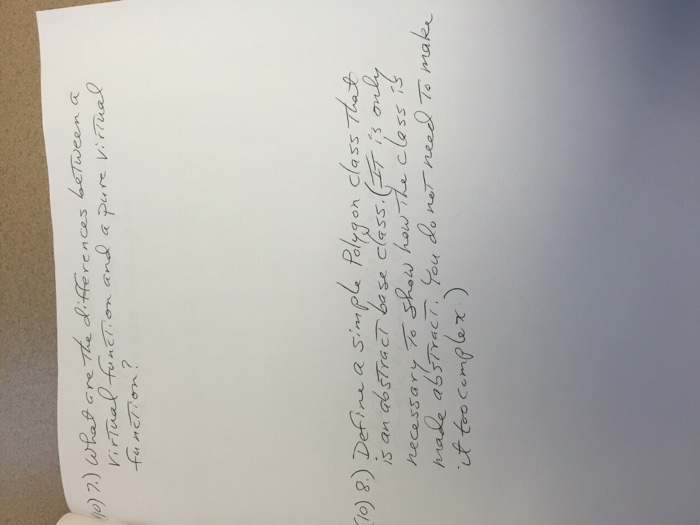 (10) 7.) What are the differences between a
virtual function and a pure virtual
function?
(10) 8.) Define a simple Polygon class that
is an abstract base class. (It is only
necessary to show how the class is
made abstract. You do not need to make
it too complex.)